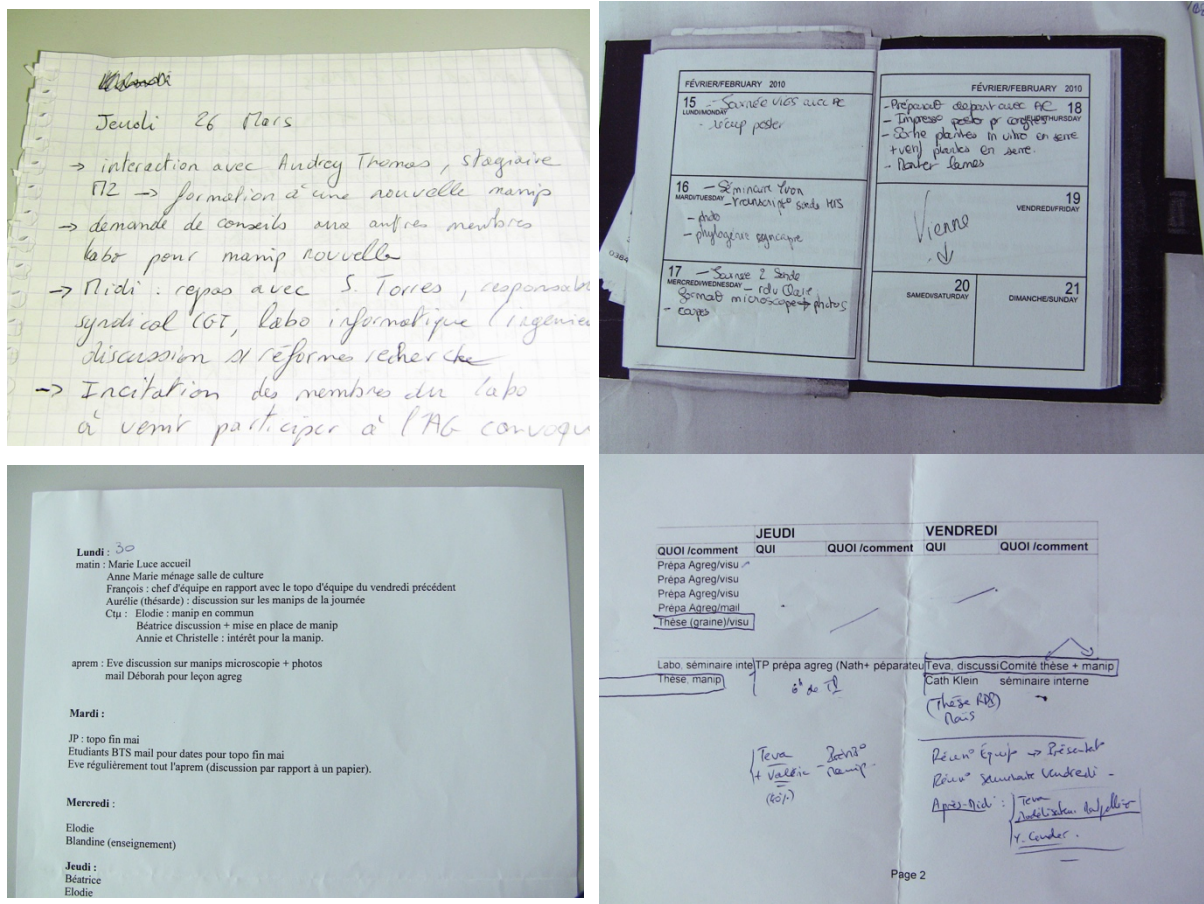 Jeudi 26 Mars
→ interaction avec Audrey Thomas, stagiaire
M2 → formation à une nouvelle manip
→ demande de conseils aux autres membres
labo pour manip nouvelle
→ Midi : repas avec S. Torres, responsab
syndical CGT, labo informatique (ingénie
discussion sr réformes recherche
→ Incitation des membres du labo
à venir participer à l'AG convoqu
FÉVRIER/FEBRUARY 2010
15 - Journée avec AE
LUNDI/MONDAY
- récup poster
16 - Séminaire Yvon
MARDI/TUESDAY - transcript° sonde
- photo
- phylogénie
17 - Journée 2 sonde
MERCREDI/WEDNESDAY - rdv Claire
format° microscope → photos
- coupes
FÉVRIER/FEBRUARY 2010
- Préparat° départ avec AE 18
- Impress° poster pr congrès JEUDI/THURSDAY
- Sortie plantes in vitro en serre
+ verif plantes en serre.
- Monter lames
19
VENDREDI/FRIDAY
Vienne
↓
20
SAMEDI/SATURDAY
21
DIMANCHE/SUNDAY
0384
Lundi : 30
matin : Marie Luce accueil
Anne Marie ménage salle de culture
François : chef d'équipe en rapport avec le topo d'équipe du vendredi précédent
Aurélie (thésarde) : discussion sur les manips de la journée
Ctμ : Elodie : manip en commun
Béatrice discussion + mise en place de manip
Annie et Christelle : intérêt pour la manip.
aprem : Eve discussion sur manips microscopie + photos
mail Déborah pour leçon agreg
Mardi :
JP : topo fin mai
Etudiants BTS mail pour dates pour topo fin mai
Eve régulièrement tout l'aprem (discussion par rapport à un papier).
Mercredi :
Elodie
Blandine (enseignement)
Jeudi :
Béatrice
Elodie
JEUDI VENDREDI
QUOI /comment QUI QUOI /comment QUI QUOI /comment
Prépa Agreg/visu
Prépa Agreg/visu
Prépa Agreg/visu
Prépa Agreg/mail
Thèse (graine)/visu
Labo, séminaire inte TP prépa agreg (Nath+ péparateu Teva, discussi Comité thèse + manip
Thèse, manip Cath Klein séminaire interne
6h de TP
(Thèse RDP)
Maïs
Teva
+ Valérie - manip
(40%)
Réun° Équipe → Présentat°
Réun° Vendredi -
Après-Midi : Teva
Modélisateur Montpellier
Y.
Page 2